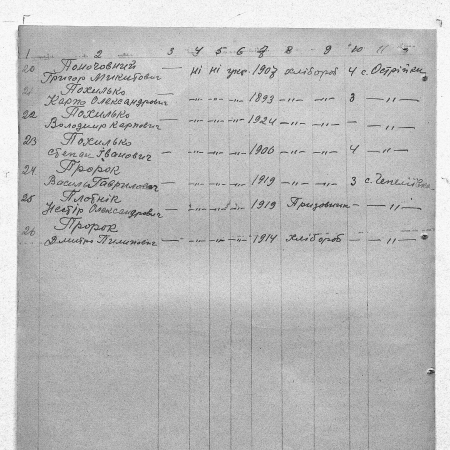 1 2 3 4 5 6 7 8 9 10 11
20 Поночовний
Григор Микитович — ні ні укр. 1907 хлібороб 4 с. Острійки
21 Похилько
Карпо Олександрович — —„— —„— —„— 1893 —„— —„— 3 —„—
22 Похилько
Володимир Карпович — —„— —„— —„— 1924 —„— —„— — —„—
23 Похилько
Степан Іванович — —„— —„— —„— 1906 —„— —„— 4 —„—
24 Пророк
Василь Гаврилович — —„— —„— —„— 1919 —„— —„— 3 с.
25 Плотнік
Нестір Олександрович — —„— —„— —„— 1919 — —„—
26 Пророк
Дмитро Пилипович — —„— —„— —„— 1914 хлібороб — —„—